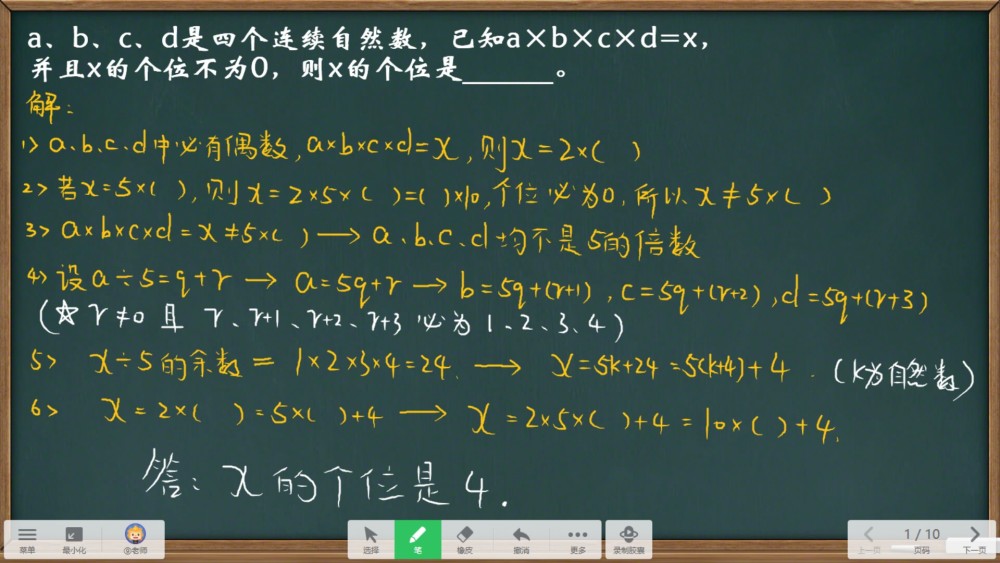 a、b、c、d是四个连续自然数，已知a×b×c×d=x，
并且x的个位不为0，则x的个位是______。
解：
1> a、b、c、d中必有偶数，a×b×c×d=x，则x=2×( )
2> 若x=5×( )，则x=2×5×( )=( )×10，个位必为0，所以x≠5×( )
3> a×b×c×d=x≠5×( ) → a、b、c、d均不是5的倍数
4> 设a÷5=q+r → a=5q+r → b=5q+(r+1)，c=5q+(r+2)，d=5q+(r+3)
(☆ r≠0 且 r、r+1、r+2、r+3 必为 1、2、3、4)
5> x÷5的余数=1×2×3×4=24. → x=5k+24=5(k+4)+4. (k为自然数)
6> x=2×( )=5×( )+4 → x=2×5×( )+4=10×( )+4.
答：x的个位是4.
菜单 最小化 老师 选择 笔 橡皮 撤消 更多 录制胶囊 上一页 1/10 页码 下一页